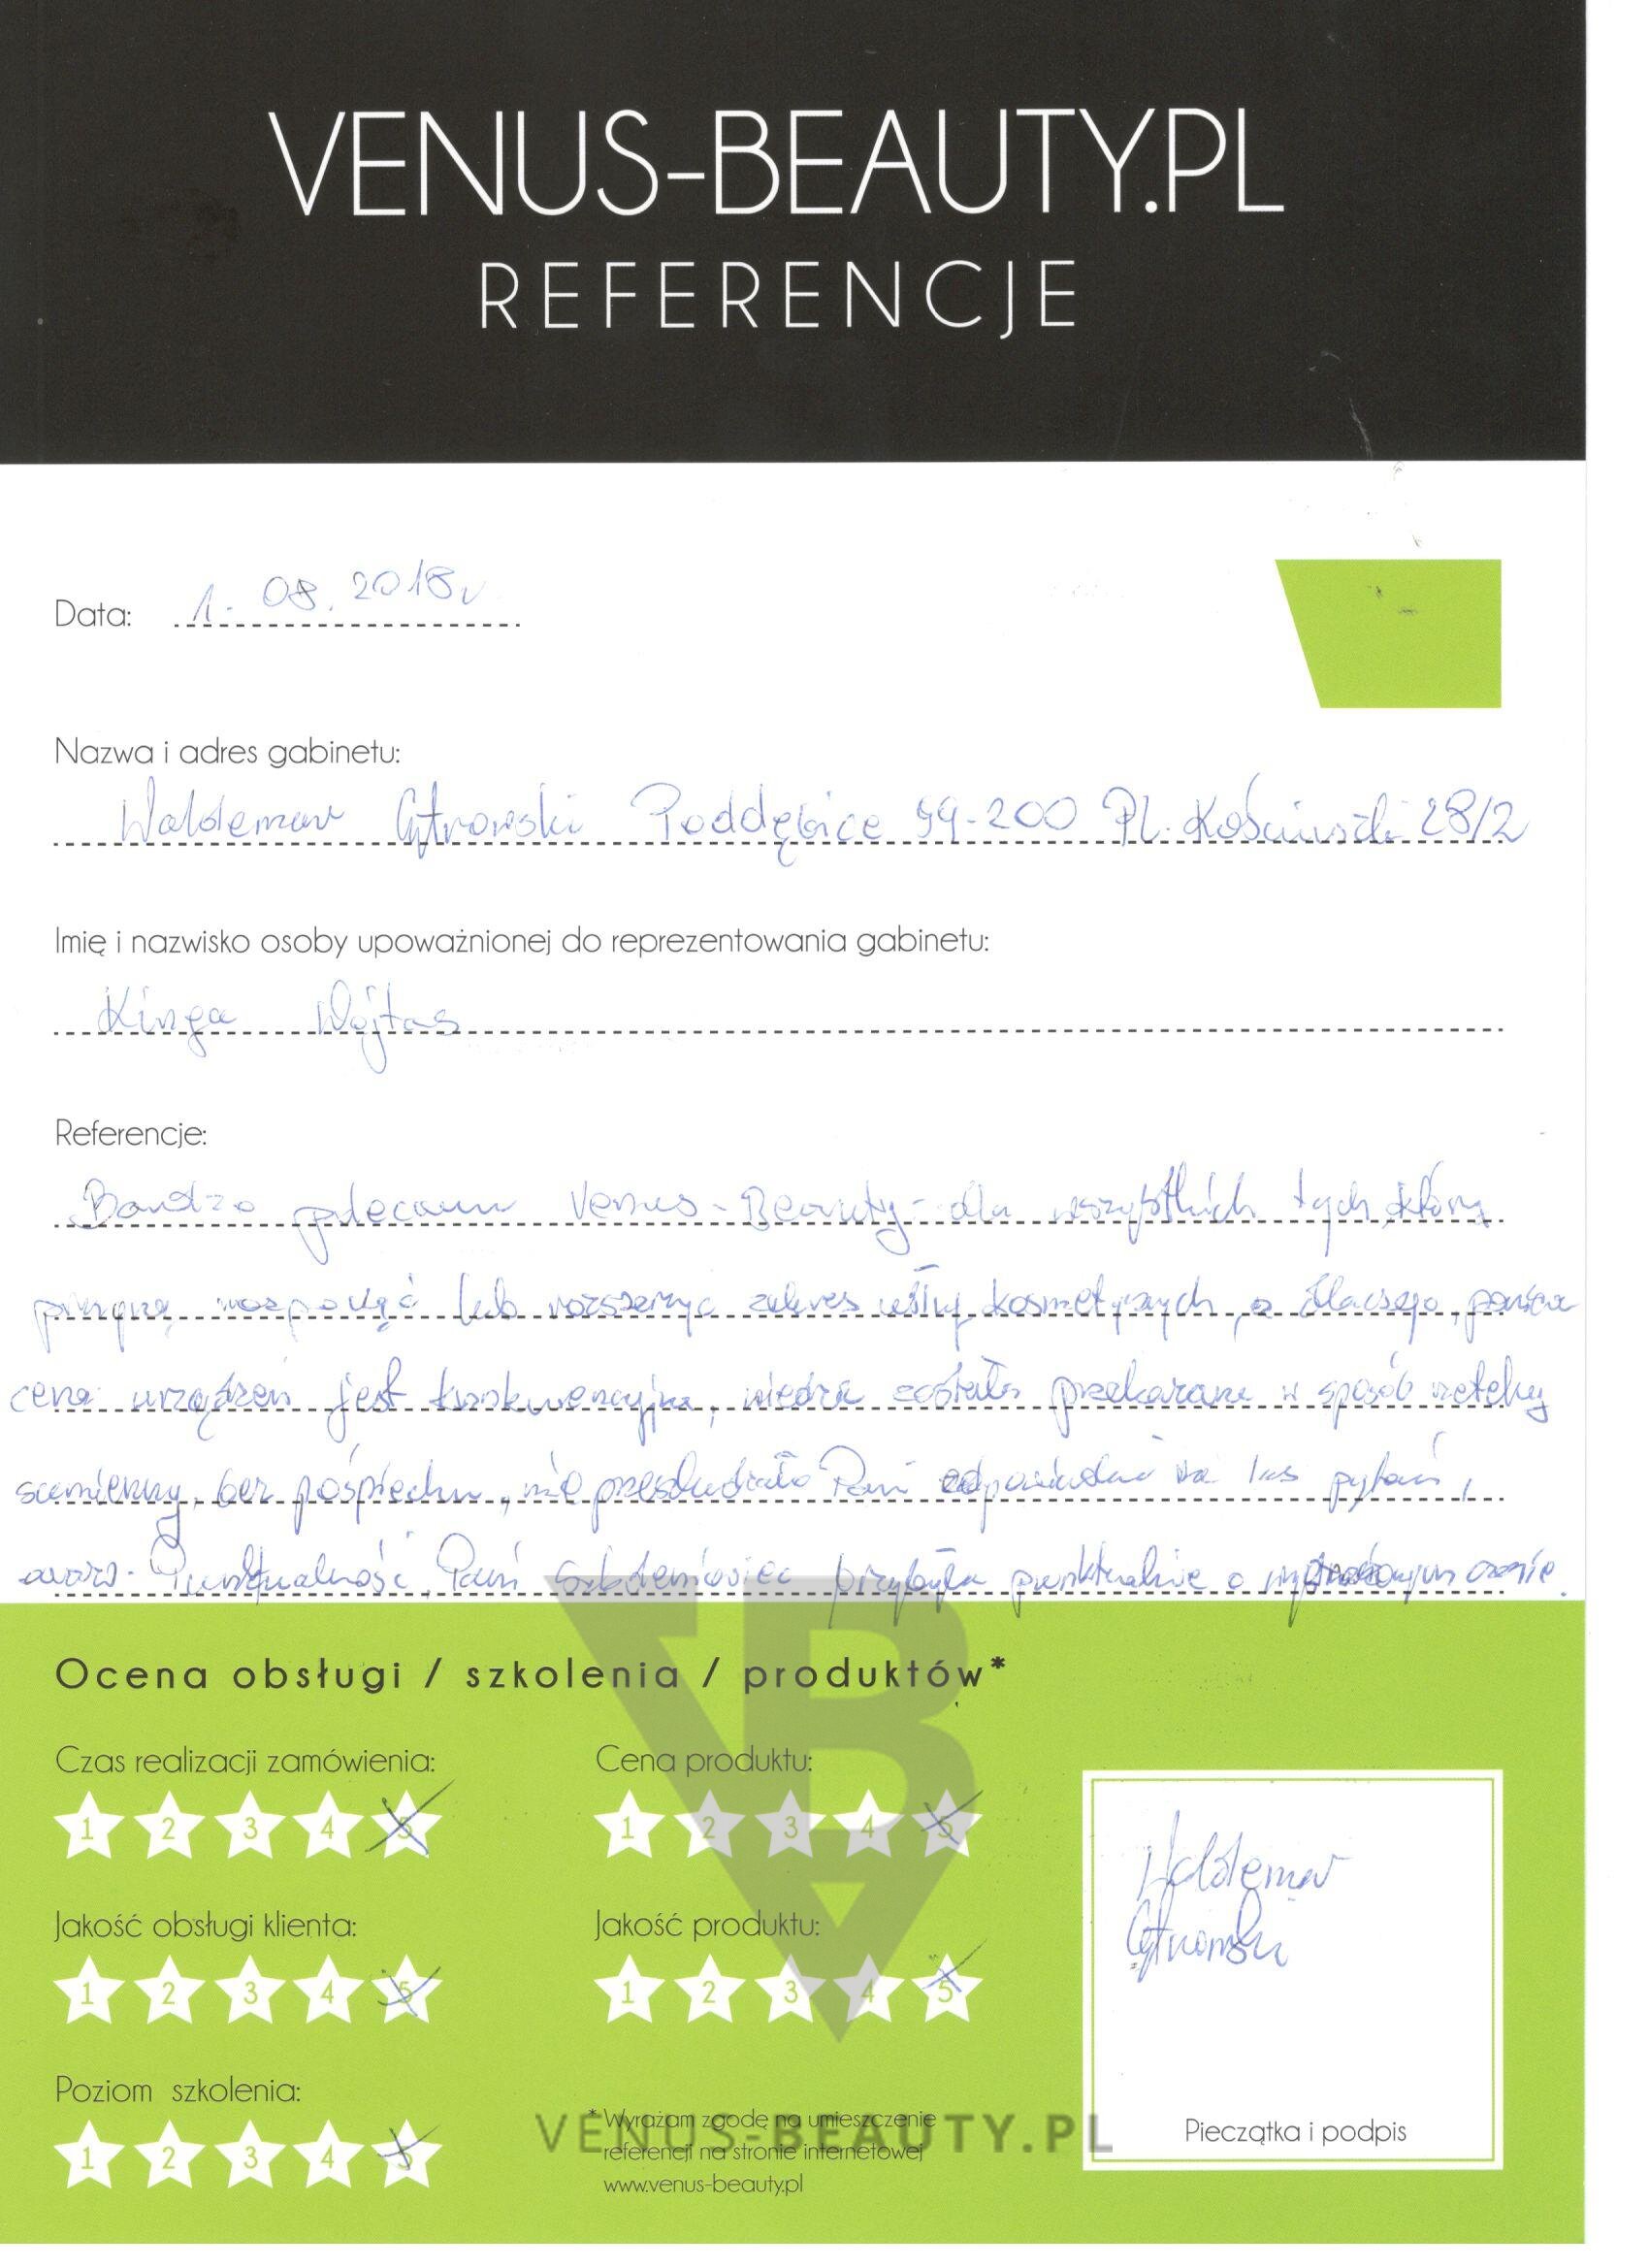 VENUS-BEAUTY.PL
REFERENCJE
Data: 1. 08. 2018r
Nazwa i adres gabinetu:
Waldemar Cytrowski Poddębice 99-200 Pl. Kościuszki 28/2
Imię i nazwisko osoby upoważnionej do reprezentowania gabinetu:
Kinga Wójtas
Referencje:
Bardzo polecam Venus-Beauty - dla wszystkich tych, którzy
pragną rozpocząć lub rozszerzyć zakres usług kosmetycznych, a dlaczego,
cena urządzeń jest konkurencyjna, wiedza została przekazana w sposób rzetelny
sumienny, bez pośpiechu, nie przeszkadzało Pani odpowiadać na pytań,
oraz. Punktualność, Pani przybyła punktualnie o czasie.
Ocena obsługi / szkolenia / produktów*
Czas realizacji zamówienia:
1 2 3 4 5
Cena produktu:
1 2 3 4 5
Jakość obsługi klienta:
1 2 3 4 5
Jakość produktu:
1 2 3 4 5
Waldemar
Cytrowski
Poziom szkolenia:
1 2 3 4 5
* Wyrażam zgodę na umieszczenie
referencji na stronie internetowej
www.venus-beauty.pl
VENUS-BEAUTY.PL
Pieczątka i podpis